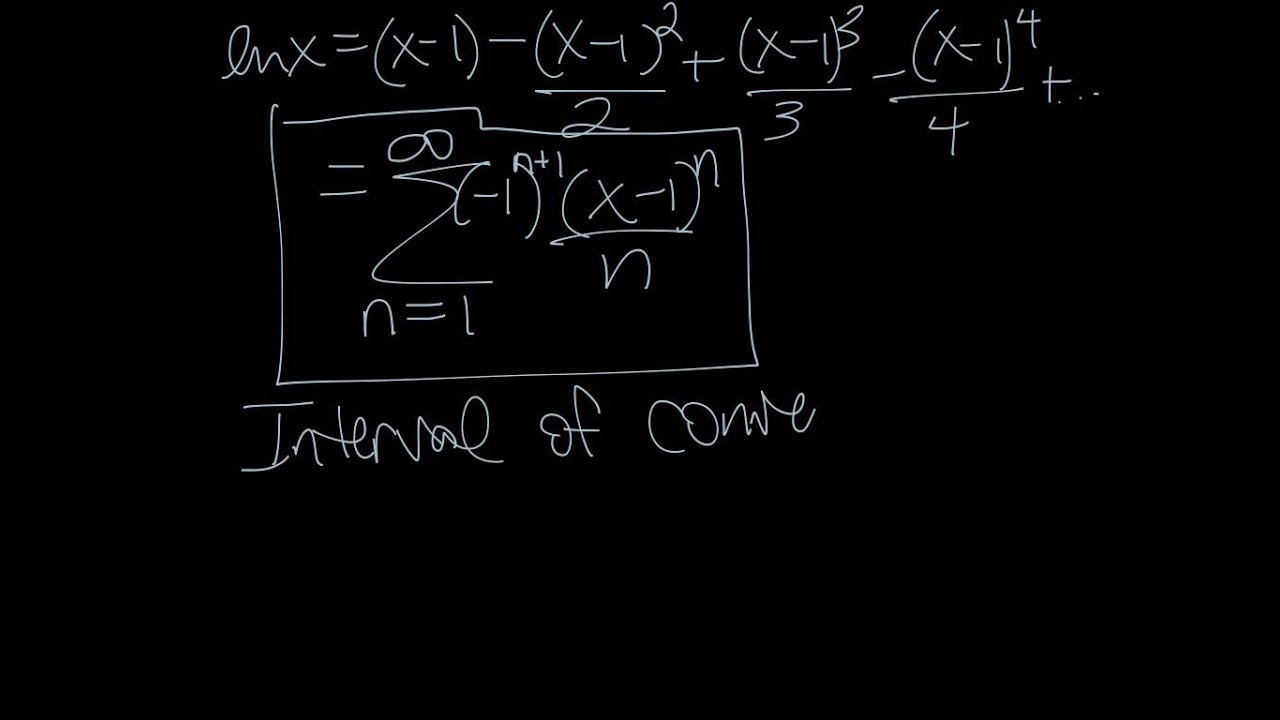 lnx = (x-1) - (x-1)²/2 + (x-1)³/3 - (x-1)⁴/4 + ...
= ∞∑n=1 (-1)ⁿ⁺¹ (x-1)ⁿ/n
Interval of conve